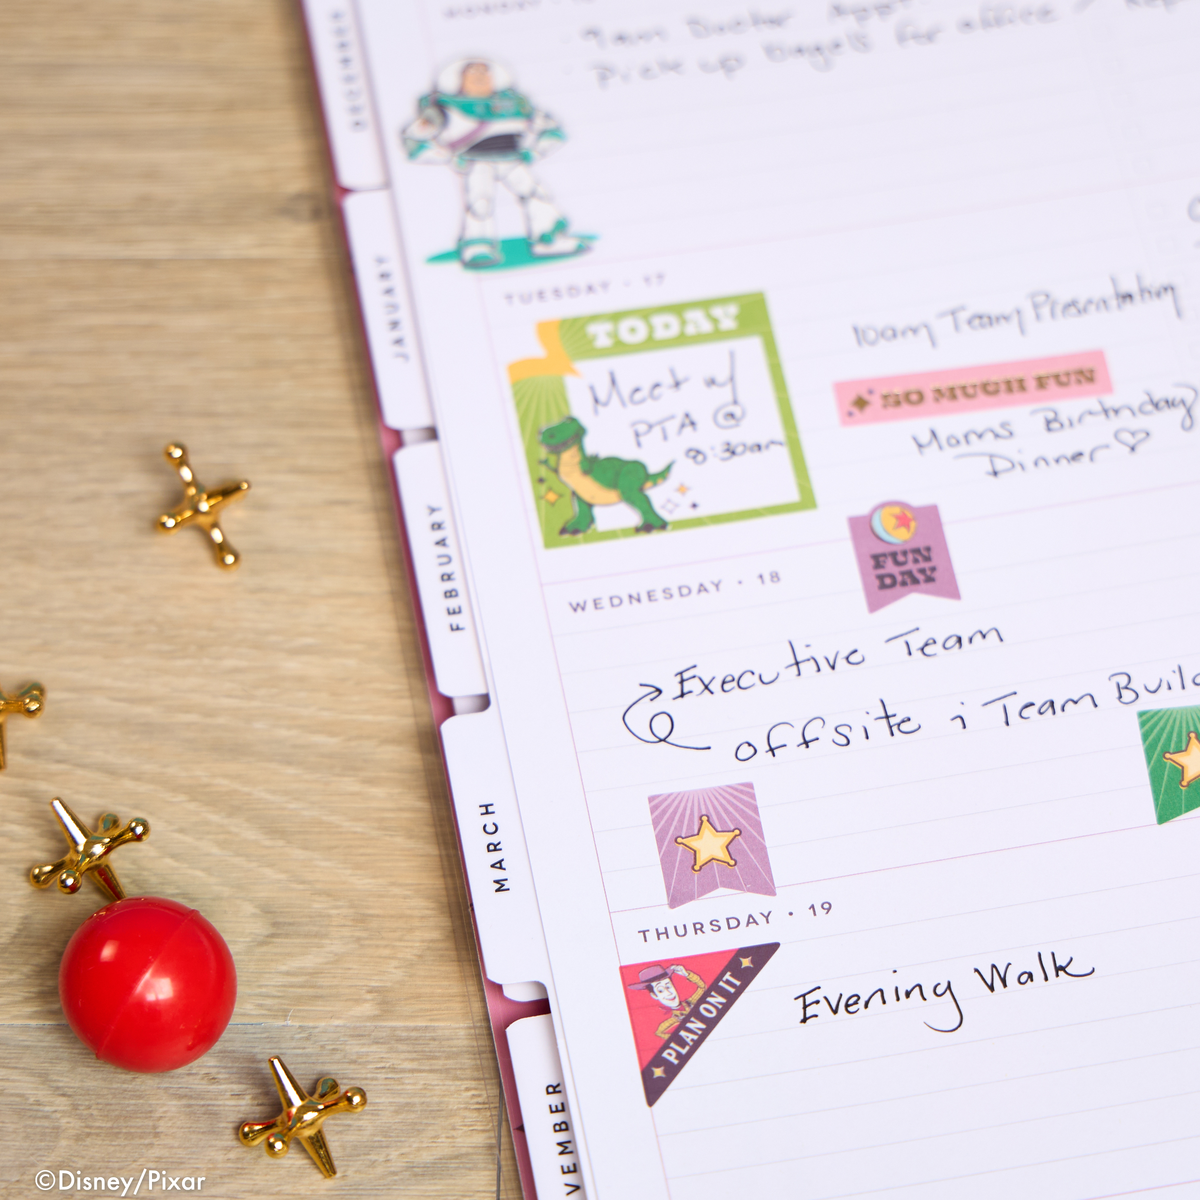 DECEMBER
MONDAY ·
· 9am Doctor Appt
· Pick up bagels for office /
JANUARY
TUESDAY · 17
TODAY
Meet w/
PTA @
8:30am
10am Team Presentation
SO MUCH FUN
Moms Birthday
Dinner ♡
FEBRUARY
WEDNESDAY · 18
FUN
DAY
Executive Team
offsite ; Team Build
MARCH
THURSDAY · 19
PLAN ON IT
Evening Walk
VEMBER
©Disney/Pixar